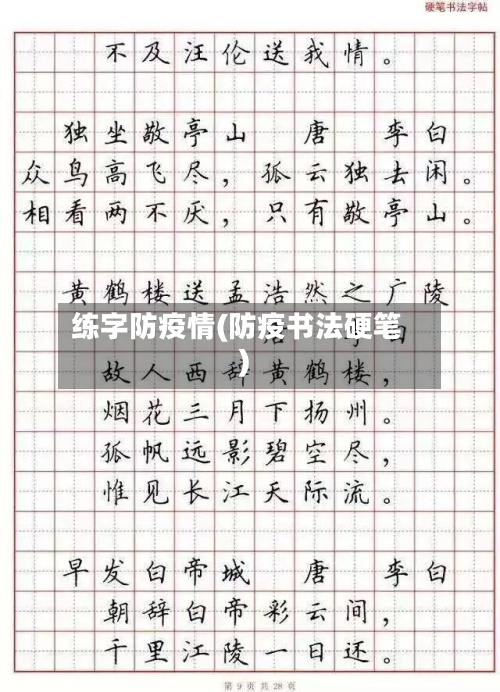 硬笔书法字帖
不及汪伦送我情。
独坐敬亭山 唐 李白
众鸟高飞尽，孤云独去闲。
相看两不厌，只有敬亭山。
黄鹤楼送孟浩然之广陵
练字防疫情(防疫书法硬笔
)
故人西辞黄鹤楼，
烟花三月下扬州。
孤帆远影碧空尽，
惟见长江天际流。
早发白帝城 唐 李白
朝辞白帝彩云间，
千里江陵一日还。
第 9 页 共 28 页